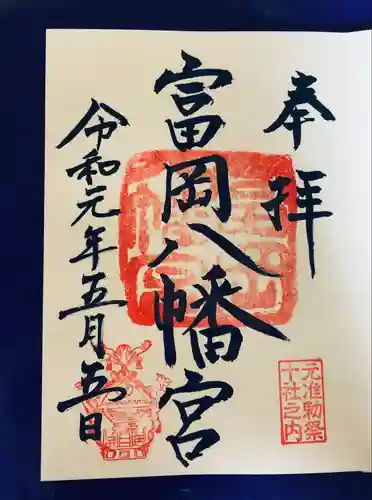 奉拝
元准勅祭
十社之内
富岡八幡宮
令和元年五月五日